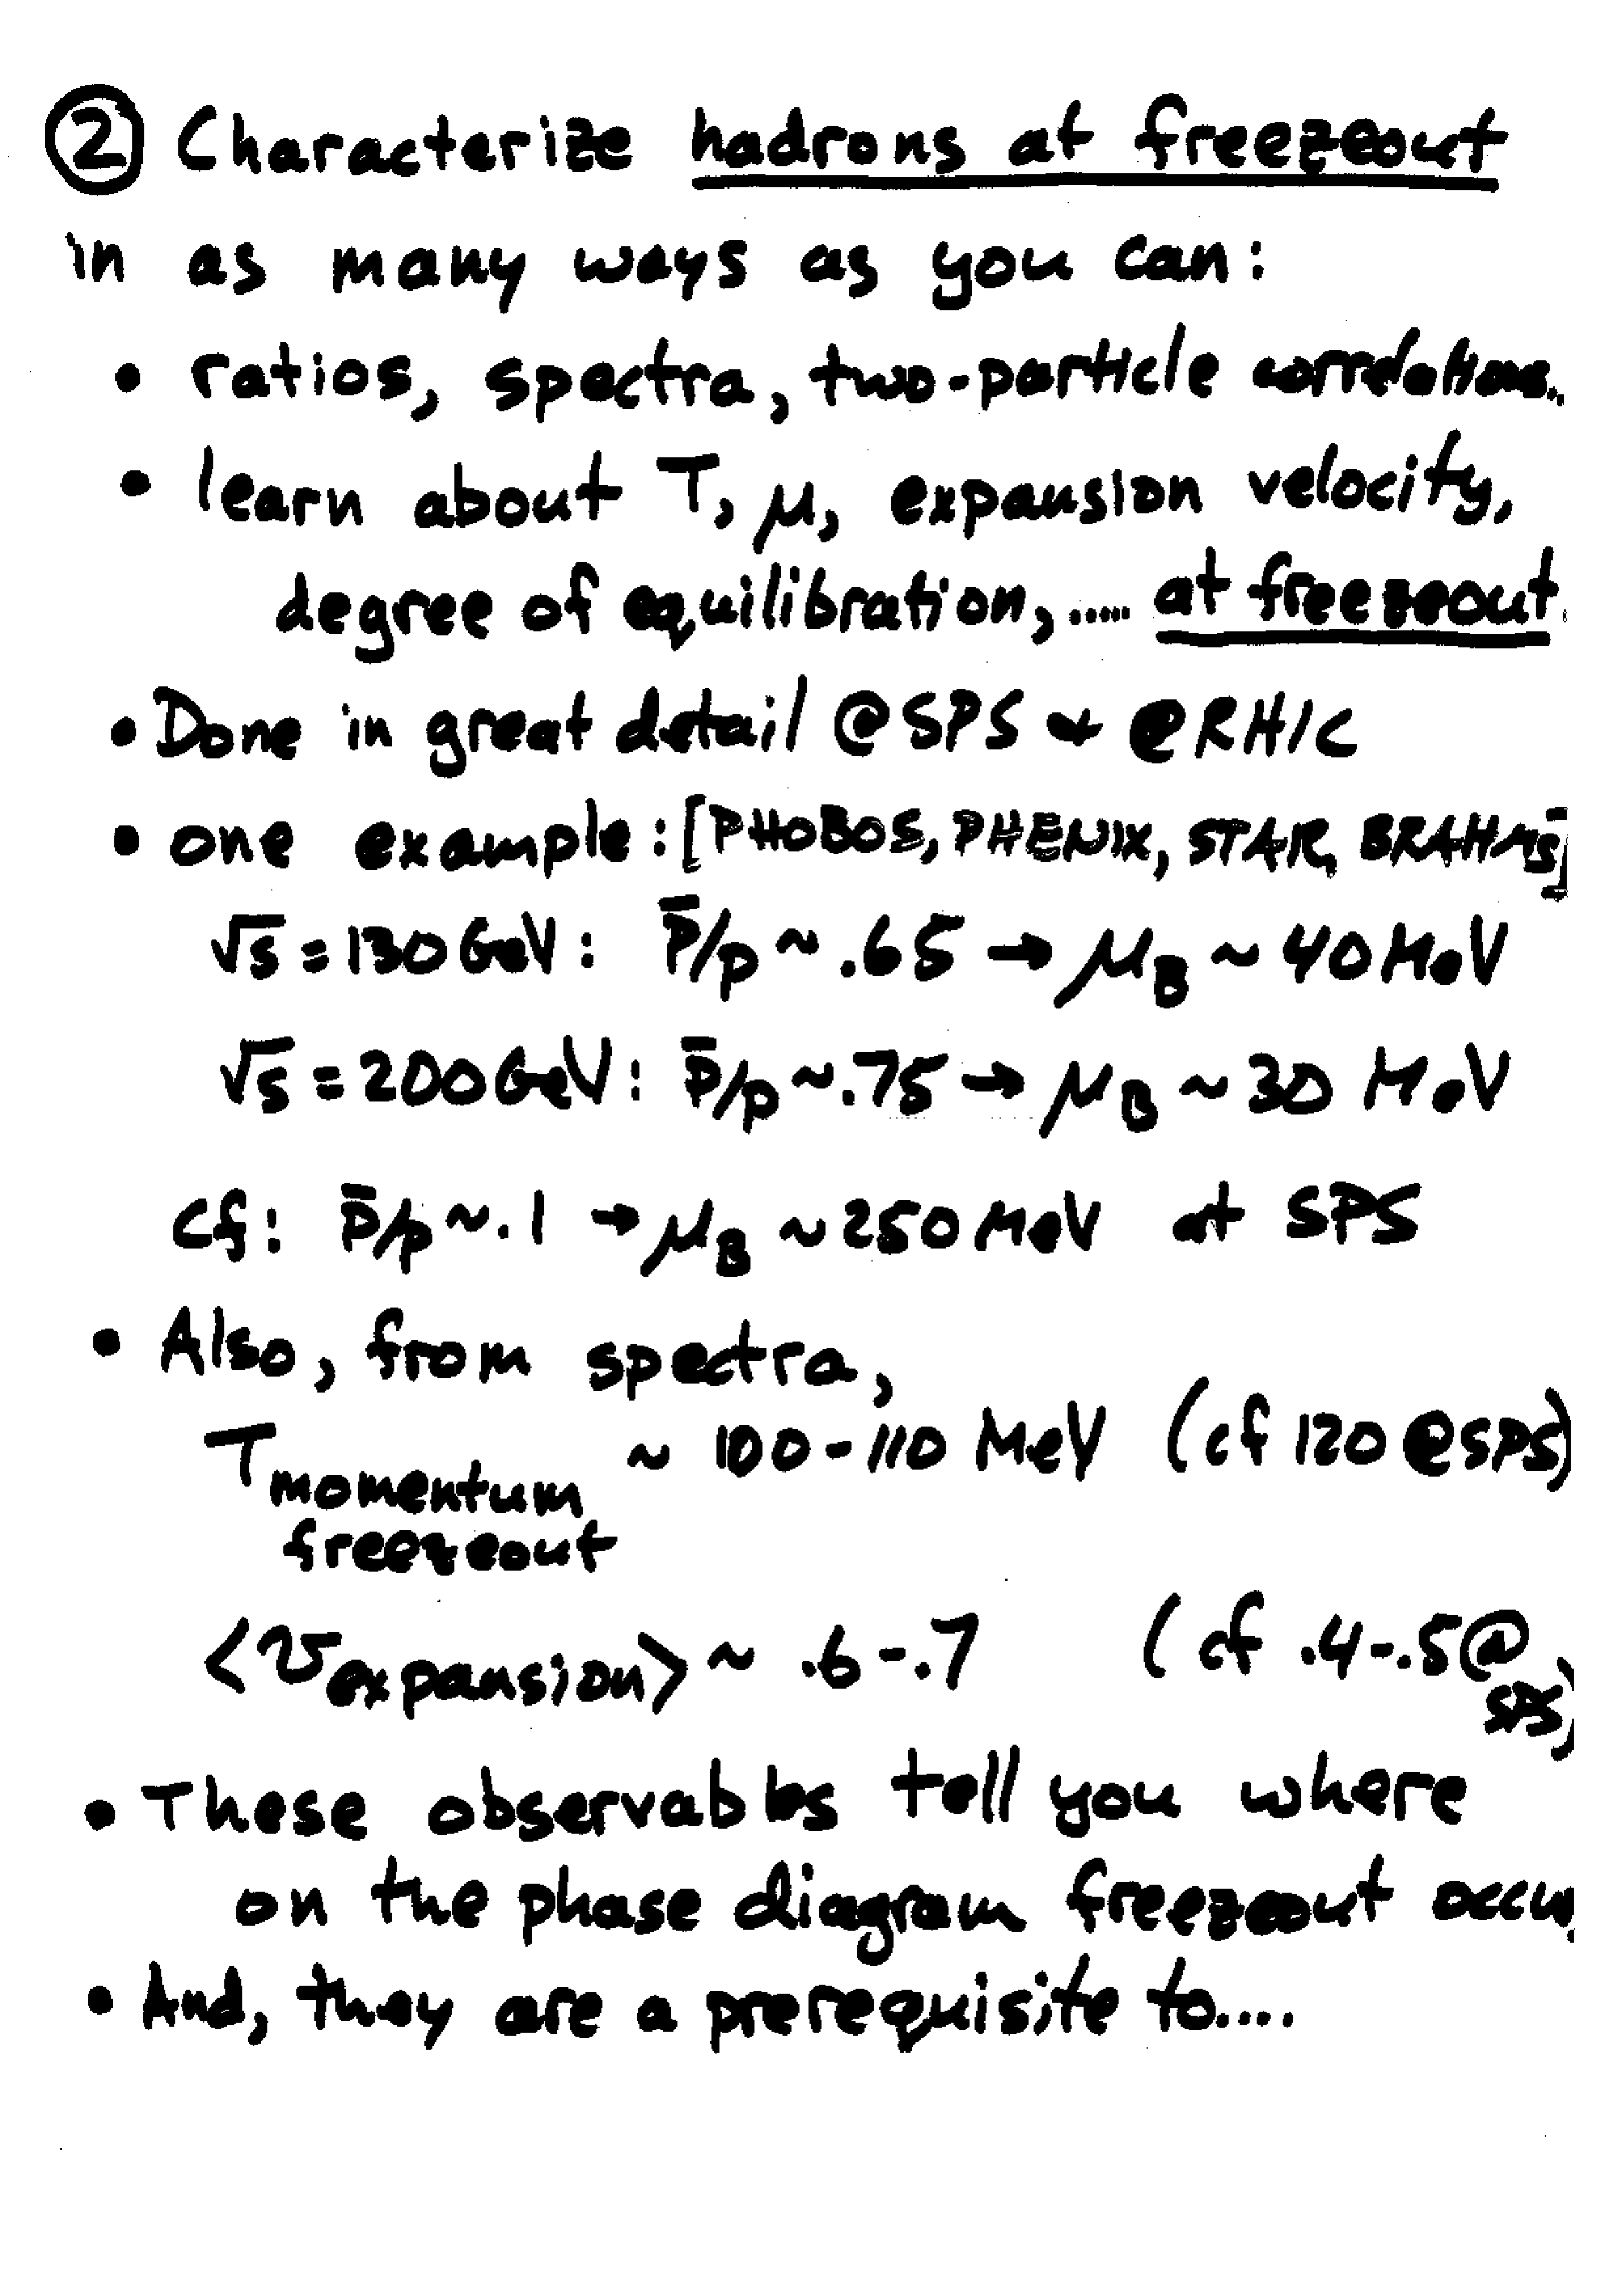 ② Characterize hadrons at freezeout
in as many ways as you can:
• ratios, spectra, two-particle correlations..
• learn about T, μ, expansion velocity,
degree of equilibration,..... at freezeout.
• Done in great detail @SPS + @RHIC
• one example: [PHOBOS, PHENIX, STAR, BRAHMS]
√s = 130 GeV: p̄/p ~ .65 → μ_B ~ 40 MeV
√s = 200 GeV: p̄/p ~ .75 → μ_B ~ 30 MeV
cf: p̄/p ~ .1 → μ_B ~ 250 MeV at SPS
• Also, from spectra,
T momentum ~ 100-110 MeV (cf 120 @SPS)
freezeout
<v expansion> ~ .6-.7 (cf .4-.5@
SPS)
• These observables tell you where
on the phase diagram freezeout occu
• And, they are a prerequisite to....